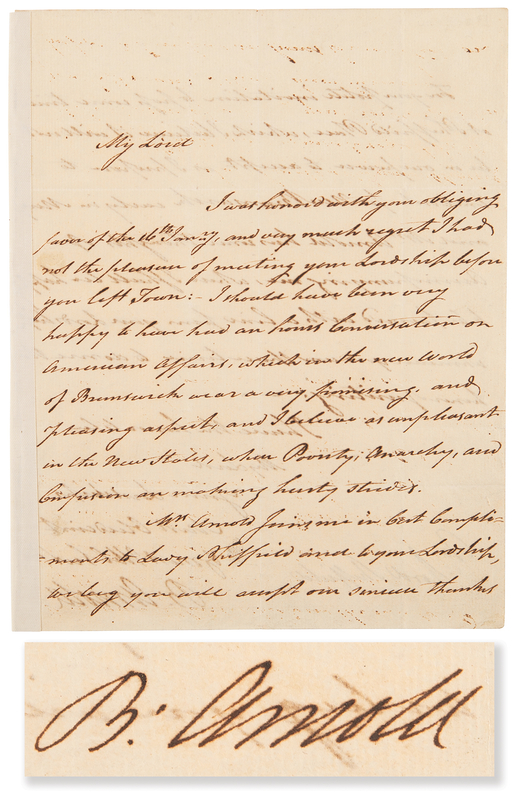 My Lord
I was honord with your obliging
favor of the 16th Jany, and very much regret I had
not the pleasure of meeting your Lordship before
you left Town:- I should have been very
happy to have had an hours Conversation on
American Affairs, which in the new World
of Brunswick wear a very promising and
pleasing aspect, and I believe as unpleasant
in the New States, where Poverty, Anarchy, and
Confusion are making hasty strides.
Mrs Arnold Joins me in best Compli-
-ments to Lady Sheffield and to your Lordship,
we beg you will accept our sincere thanks
B. Arnold